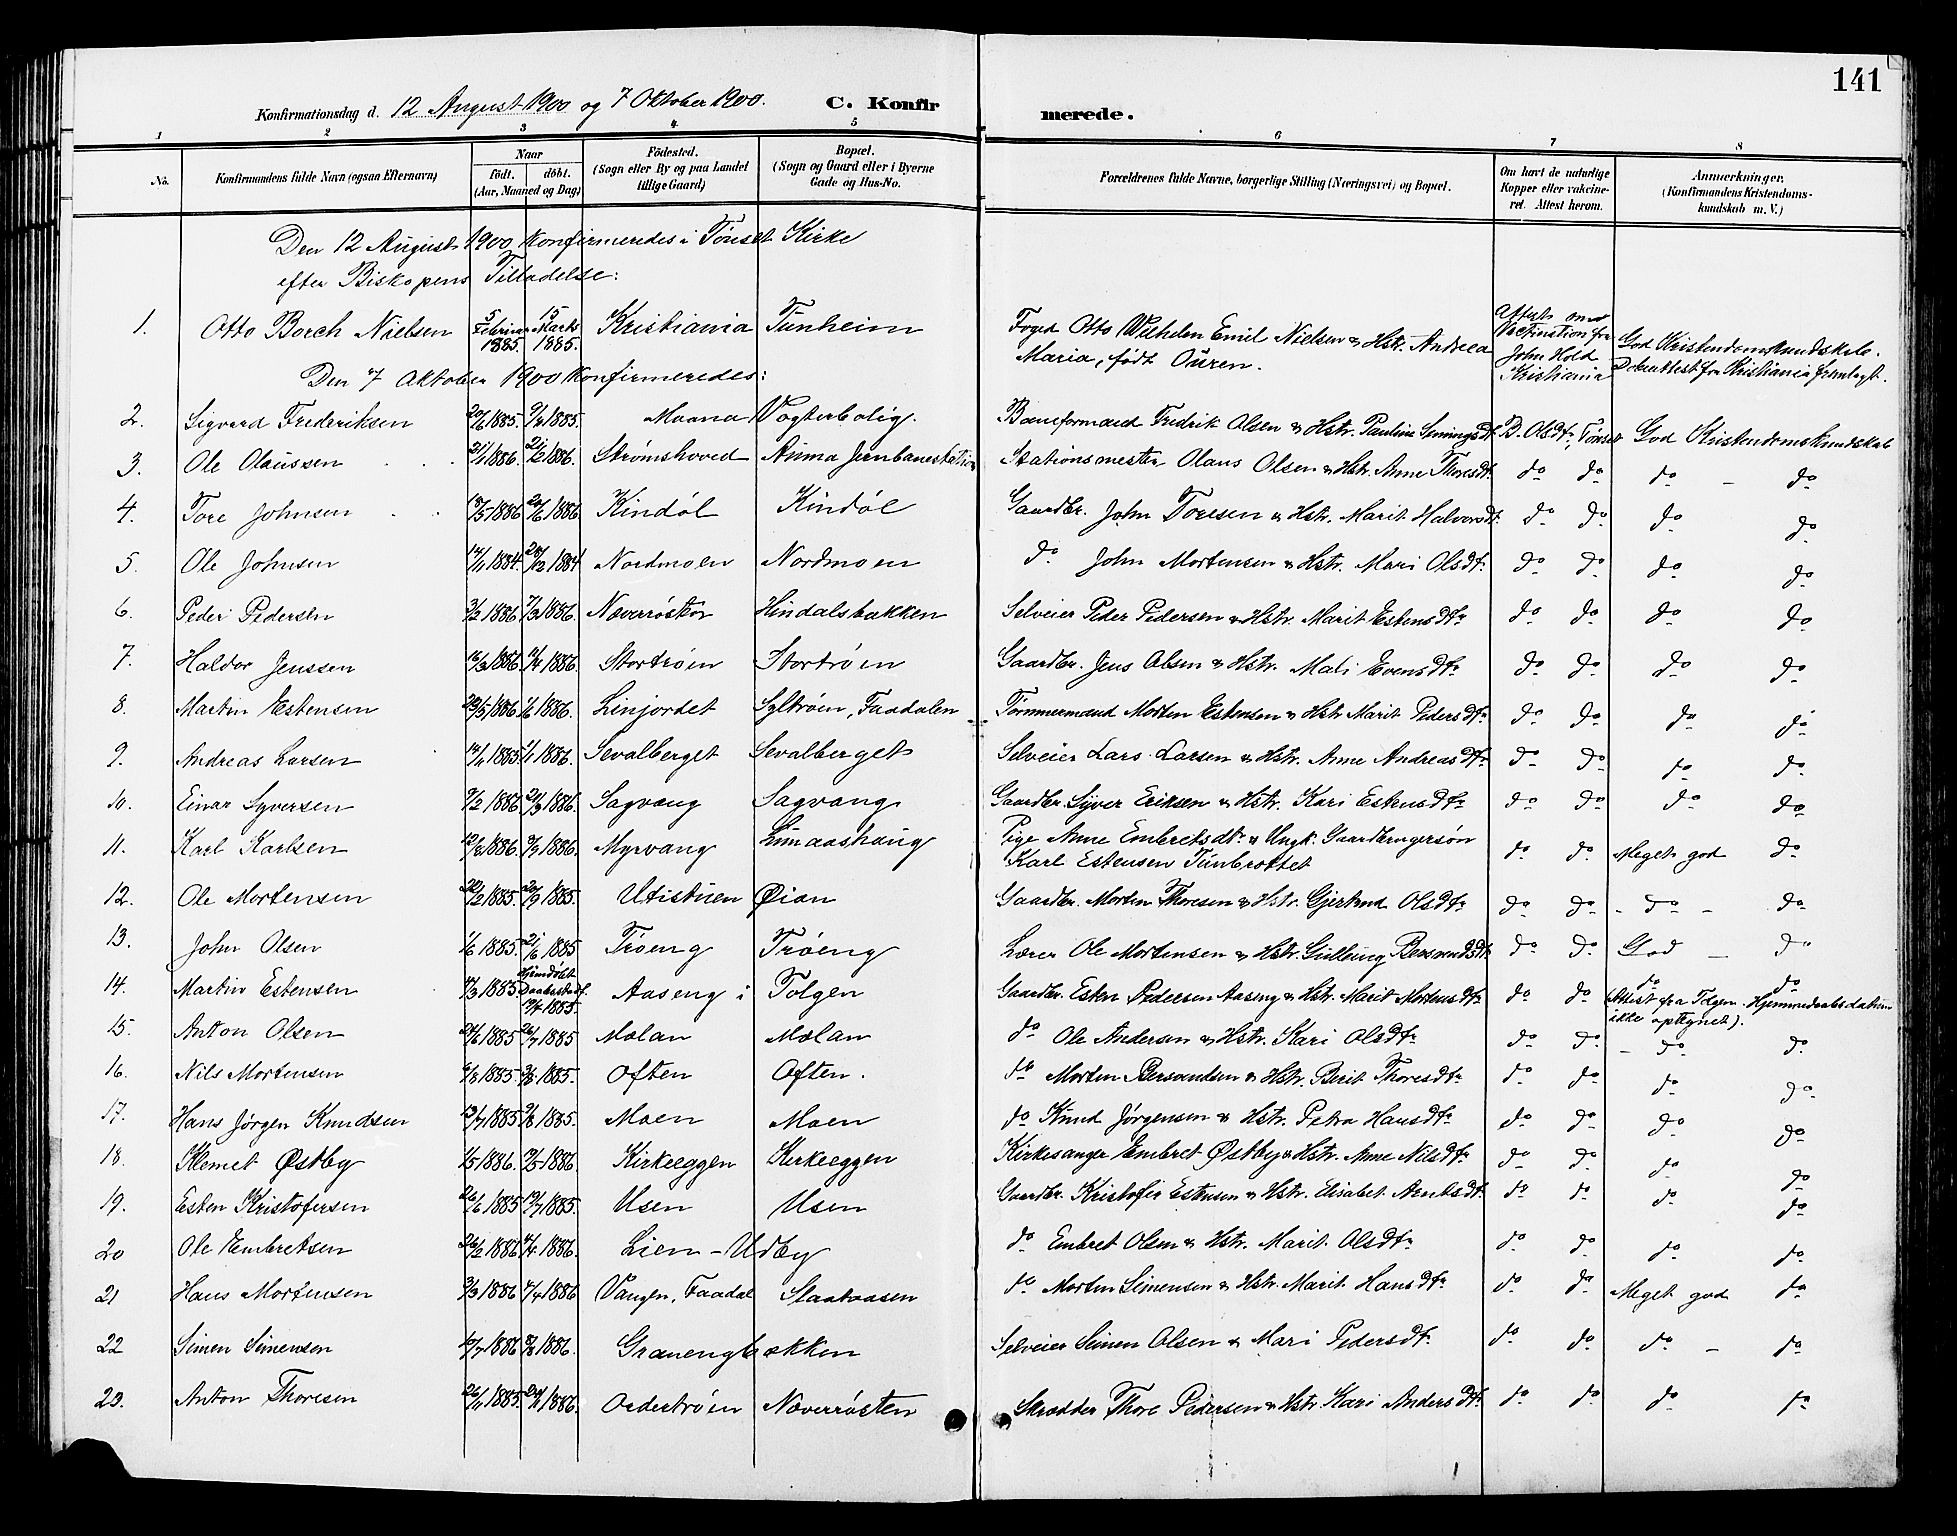 141
Konfirmationsdag d. 12 August 1900 og 7 Oktober 1900. C. Konfirmerede.
1 2 3 4 5 6 7 8
No. Konfirmandens fulde Navn (ogsaa Efternavn) Naar födt. döbt. (Aar, Maaned og Dag) Födested. (Sogn eller By og paa Landet tillige Gaard) Bopæl. (Sogn og Gaard eller i Byerne Gade og Hus-No. Forældrenes fulde Navne, borgerlige Stilling (Næringsvei) og Bopæl. Om havt de naturlige Kopper eller vakcineret. Attest herom. Anmærkninger. (Konfirmandens Kristendomskundskab m. V.)
Den 12 August 1900 konfirmeredes i Tönset Kirke
efter Biskopens Tilladelse:
1. Otto Borch Nielsen 5 Februar 1885. 15 Marts 1885. Kristiania Tunheim Foged Otto Wilhelm Emil Nielsen & Hstr. Andrea Maria, født Ouren. Attest om Vaccination fra John Hold Kristiania God Kristendomskundskab. Dobeattest fra Kristiania fremlagt.
Den 7 Oktober 1900 konfirmeredes:
2. Sigvard Frederiksen 1885. 1885. Moana Vogterbolig. Baneformand Fredrik Olsen & Hstr. Pauline D. Olsdtr Tønset God Kristendomskundskab
3. Ole Olaussen 21/1 1886. 21/2 1886. Strømshoved Auma Jernbanestation Stationsmester Olaus Olsen & Hstr. Anne Thoresdtr do do do - do
4. Tore Johnsen 1886 20/6 1886 Kindøl Kindøl Gaardbr. John Toresen & Hstr. Marit Halvorsdtr. do do do do
5. Ole Johnsen 1884. 1884 Nordmoen Nordmoen do John Mortensen & Hstr. Mari Olsdtr. do do do do
6. Peder Pedersen 3/2 1886 7/3 1886. Næverrøsten Hindalsbakken Selveier Peder Pedersen & Hstr. Marit Estensdtr do do do do
7. Haldor Jenssen 1886. 1886. Stortrøen Stortrøen Gaardbr. Jens Olsen & Hstr. Mali Evensdtr do do do do
8. Martin Estensen 1886. 1886. Linjordet Syltrøen, Faadalen Tømmermand Morten Estensen & Hstr Marit Pedersdtr do do do do
9. Andreas Larsen 1885 1/1 1886. Sevalberget Sevalberget Selveier Lars Larsen & Hstr. Anne Andreasdtr do do do do
10. Einar Syversen 9/2 1886. 21/3 1886. Sagvang Sagvang Gaardbr. Syver Eriksen & Hstr. Kari Estensdtr do do do do
11. Karl Karlsen 1886. 1886. Myrvang Limaashaug Pige Anne Embretsdtr & Ungk. Gaardbrugersøn Karl Estensen Tunbrottet do do Meget god do
12. Ole Mortensen 1885. 1885. Utistuen Øian Gaardbr. Morten Thoresen & Hstr. Gjertrud Olsdtr do do - do - do
13. John Olsen 1/6 1885. 21/6 1885 Trøeng Trøeng Lærer Ole Mortensen & Hstr. Gullaug Bersvendsdtr do do God - do
14. Martin Estensen 1885 Hjemdøbt 1885. Aaseng i Tolgen Gaardbr. Esten Pedersen Aaseng & Hstr. Marit Mortensdtr do do do do (Attest fra Tolgen. Hjemmedaabsdatum ikke opttegnet).
15. Anton Olsen 1885 26/7 1885 Molan Molan do Ole Andersen & Hstr. Kari Olsdtr do do - do do
16. Nils Mortensen 1885. 1885. Often Often. do Morten Bersvendsen & Hstr. Berit Thoresdtr do do do do
17. Hans Jørgen Knudsen 1885. 1885. Moen Moen do Knud Jørgensen & Hstr. Petra Hansdtr do do do do
18. Klemet Østby 1886. 1886. Kirkeeggen Kirkeeggen Kirkesanger Embret Østby & Hstr. Anne Nilsdtr do do do do
19. Esten Kristofersen 26/6 1885 19/7 1885. Usen Usen Gaardbr. Kristofer Estensen & Hstr. Elisabet Arntsdtr do do do do
20 Ole Embretsen 26/2 1886 4/4 1886. Lien - Udby do Embret Olsen & Hstr. Marit Olsdtr do do do do
21 Hans Mortensen 1886 4/4 1886 Vangen, Faadal Slaataasen do Morten Simensen & Hstr. Marit Hansdtr do do Meget god do
22 Simen Simensen 1886 1886. Granengbækken Selveier Simen Olsen & Mari Pedersdtr do do do - do
23. Anton Thoresen 26/11 1885. 1886. Oedertrøen Næverrøsten Skrædder Thore Pedersen & Hstr. Kari Andersdtr do do do do